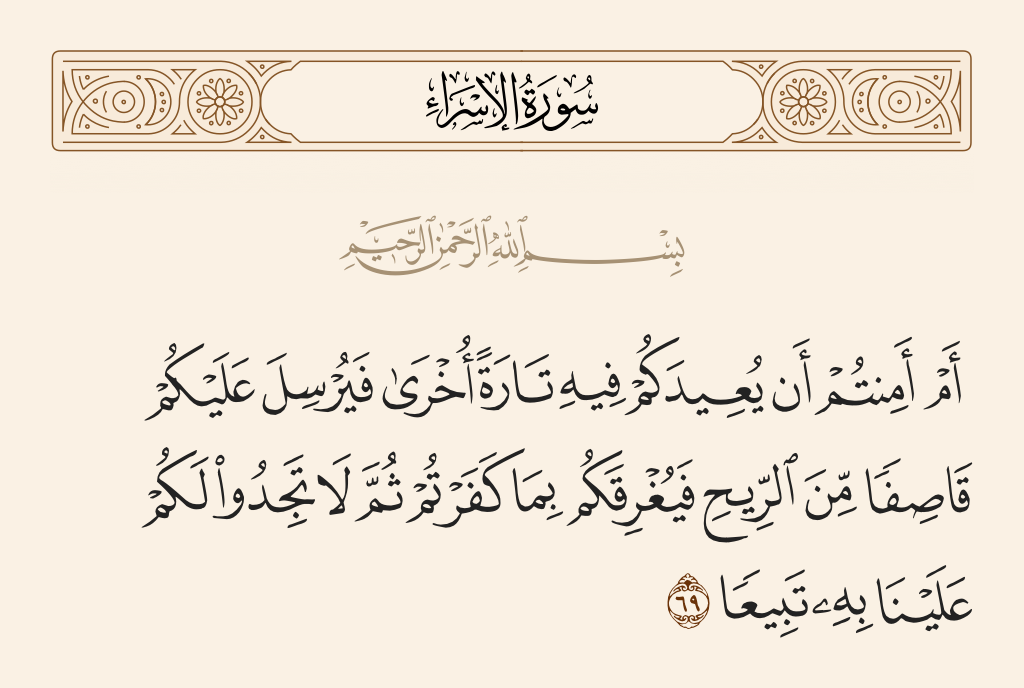 سُورَةُ الإِسْرَاءِ
بِسْمِ ٱللَّهِ ٱلرَّحْمَٰنِ ٱلرَّحِيمِ
أَمْ أَمِنتُمْ أَن يُعِيدَكُمْ فِيهِ تَارَةً أُخْرَىٰ فَيُرْسِلَ عَلَيْكُمْ
قَاصِفًا مِّنَ ٱلرِّيحِ فَيُغْرِقَكُم بِمَا كَفَرْتُمْ ثُمَّ لَا تَجِدُوا۟ لَكُمْ
عَلَيْنَا بِهِۦ تَبِيعًا ٦٩